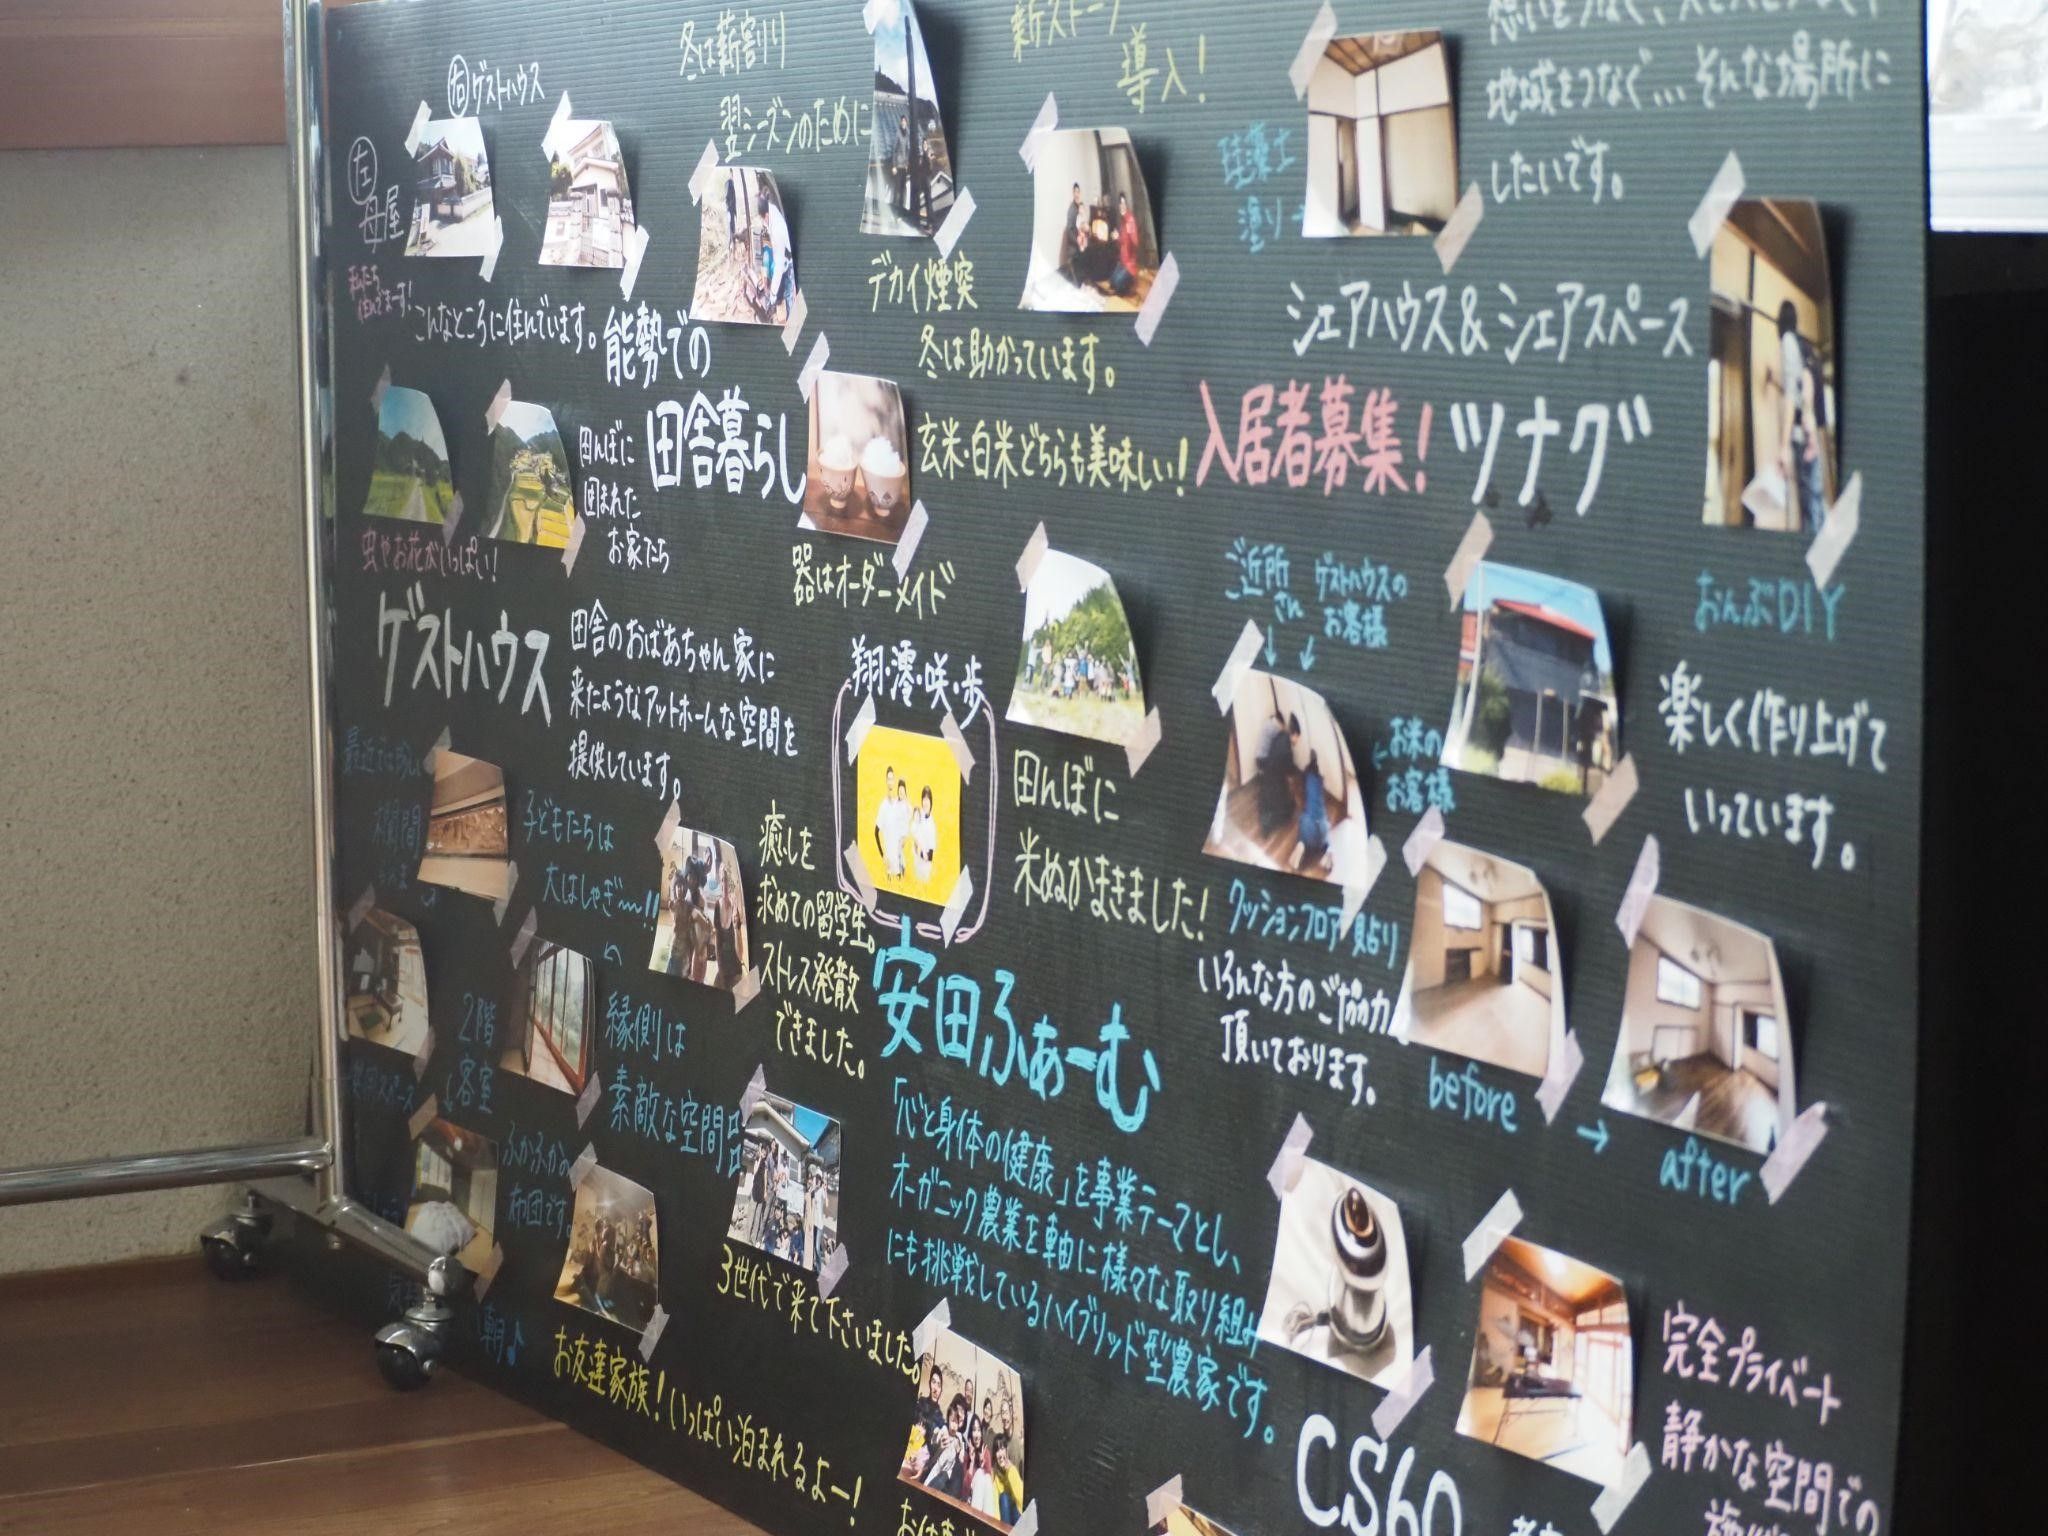 右 ゲストハウス
左
母屋
私たち
住んでまーす!
こんなところに住んでいます。
冬は薪割り
翌シーズンのために
デカイ煙突
薪ストーブ
導入!
冬は助かっています。
能勢での
田舎暮らし
田んぼに
囲まれた
お家たち
虫やお花がいっぱい!
玄米・白米どちらも美味しい!
器はオーダーメイド
珪藻土
塗り→
地域をつなぐ…そんな場所に
したいです。
シェアハウス&シェアスペース
入居者募集!
ツナグ
おんぶDIY
楽しく作り上げて
いっています。
ご近所
さん
ゲストハウスの
お客様
←お米の
お客様
クッションフロア貼り
いろんな方のご協力
頂いております。
before
→
after
ゲストハウス
田舎のおばあちゃん家に
来たようなアットホームな空間を
提供しています。
最近では珍しい
欄間
子どもたちは
大はしゃぎ〜!!
癒しを
求めての留学生。
ストレス発散
できました。
2階
客室
縁側は
素敵な空間
ふかふかの
布団です。
朝♪
お友達家族!いっぱい泊まれるよー!
3世代で来て下さいました。
翔・澪・咲・歩
田んぼに
米ぬかまきました!
安田ふぁーむ
「心と身体の健康」を事業テーマとし、
オーガニック農業を軸に様々な取り組み
にも挑戦しているハイブリッド型農家です。
CS60
完全プライベート
静かな空間での